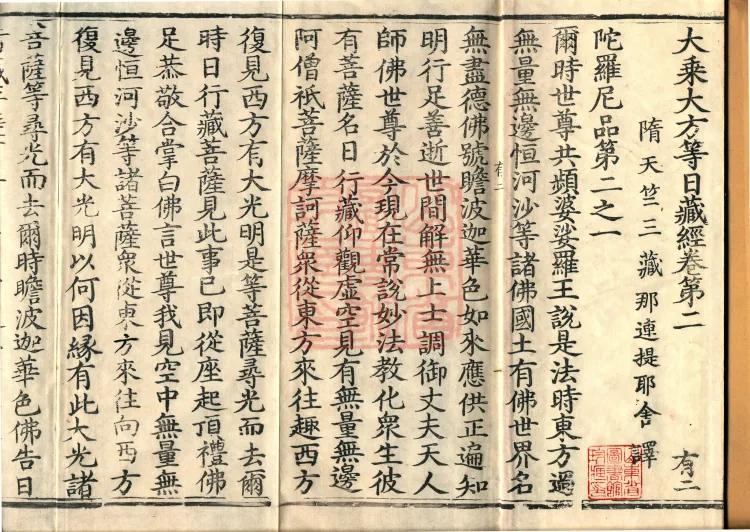 大乘大方等日藏經卷第二 有二
隋天竺三藏那連提耶舍譯
陀羅尼品第二之一
爾時世尊共頻婆娑羅王說是法時東方過
無量無邊恒河沙等諸佛國土有佛世界名
有二
無盡德佛號瞻波迦華色如來應供正遍知
明行足善逝世間解無上士調御丈夫天人
師佛世尊於今現在常說妙法教化眾生彼
有菩薩名日行藏仰觀虛空見有無量無邊
阿僧祇菩薩摩訶薩眾從東方來往趣西方
復見西方有大光明是等菩薩尋光而去爾
時日行藏菩薩見此事已即從座起頂禮佛
足恭敬合掌白佛言世尊我見空中無量無
邊恒河沙等諸菩薩眾從東方來往向西方
復見西方有大光明以何因緣有此大光諸
菩薩等尋光而去爾時瞻波迦華色佛告日